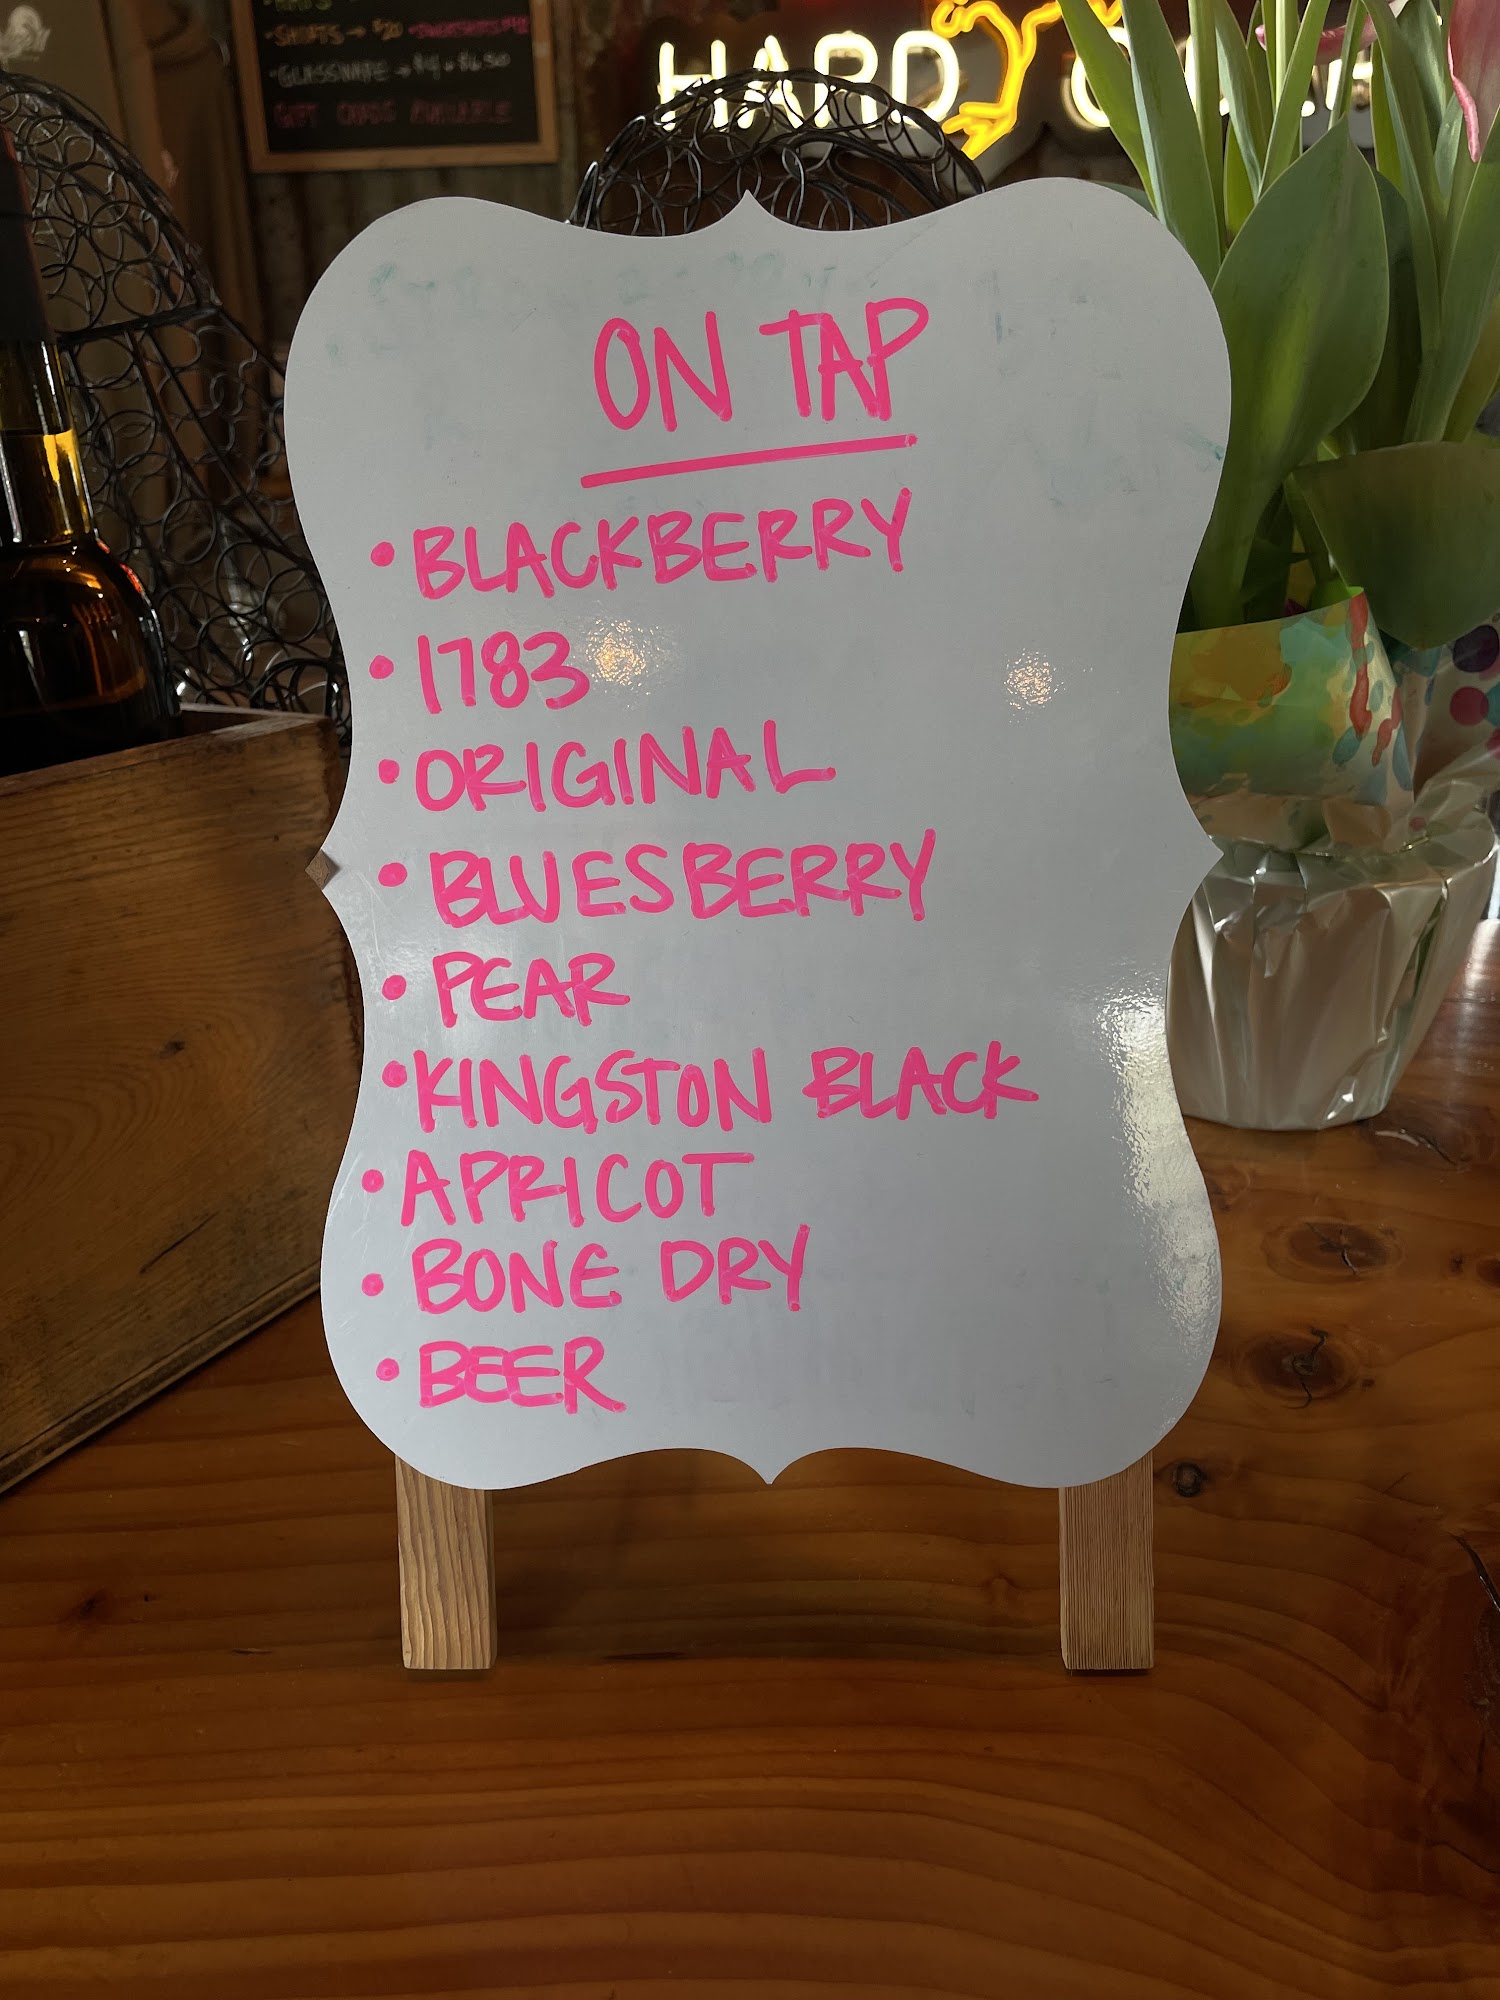 SHIRTS → $20
GLASSWARE → $4 & $6.50
GIFT CARDS AVAILABLE
HARD
ON TAP
• BLACKBERRY
• 1783
• ORIGINAL
• BLUESBERRY
• PEAR
• KINGSTON BLACK
• APRICOT
• BONE DRY
• BEER